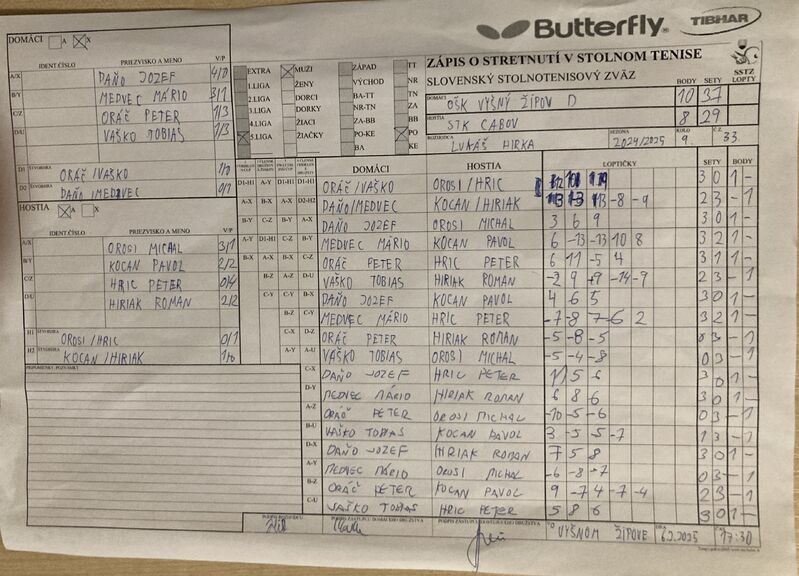 Butterfly TIBHAR
ZÁPIS O STRETNUTÍ V STOLNOM TENISE
SLOVENSKÝ STOLNOTENISOVÝ ZVÄZ
SSTZ
LOPTY
DOMÁCI A X
IDENT.ČÍSLO PRIEZVISKO A MENO V/P
A/X DAŇO JOZEF 4/0
B/Y MEDVEC MÁRIO 3/1
C/Z ORÁČ PETER 1/3
D/U VAŠKO TOBIAS 1/3
D1 ŠTVORHRA ORÁČ/VAŠKO 1/0
D2 ŠTVORHRA DAŇO/MEDVEC 0/1
HOSTIA A X
IDENT.ČÍSLO PRIEZVISKO A MENO V/P
A/X OROSI MICHAL 3/1
B/Y KOCAN PAVOL 2/2
C/Z HRIC PETER 0/4
D/U HIRIAK ROMAN 2/2
H1 ŠTVORHRA OROSI/HRIC 0/1
H2 ŠTVORHRA KOCAN/HIRIAK 1/0
PRIPOMIENKY/POZNÁMKY
EXTRA MUŽI ZÁPAD TT
1.LIGA ŽENY VÝCHOD TN
2.LIGA DORCI BA-TT NR
3.LIGA DORKY NR-TN ZA
4.LIGA ŽIACI ZA-BB BB
5.LIGA ŽIAČKY PO-KE PO
BA KE
DOMÁCI OŠK VYŠNÝ ŽIPOV D BODY 10 SETY 37
HOSTIA STK CABOV 8 29
ROZHODCA LUKÁŠ HIRKA SEZÓNA 2024/2025 KOLO 9. Č.Z. 33.
DOMÁCI HOSTIA LOPTIČKY SETY BODY
ORÁČ/VAŠKO OROSI/HRIC 3 0 1 -
DAŇO/MEDVEC KOCAN/HIRIAK -8 -9 2 3 - 1
DAŇO JOZEF OROSI MICHAL 3 6 9 3 0 1 -
MEDVEC MÁRIO KOCAN PAVOL 6 -13 -13 10 8 3 2 1 -
ORÁČ PETER HRIC PETER 6 11 -5 4 3 1 1 -
VAŠKO TOBIAS HIRIAK ROMAN -2 9 +9 -14 -9 2 3 - 1
DAŇO JOZEF KOCAN PAVOL 4 6 5 3 0 1 -
MEDVEC MÁRIO HRIC PETER -7 -8 7 6 2 3 2 1 -
ORÁČ PETER HIRIAK ROMAN -5 -8 -5 0 3 - 1
VAŠKO TOBIAS OROSI MICHAL -5 -4 -8 0 3 - 1
C-X DAŇO JOZEF HRIC PETER 11 5 6 3 0 1 -
D-Y MEDVEC MÁRIO HIRIAK ROMAN 6 8 6 3 0 1 -
A-Z ORÁČ PETER OROSI MICHAL -10 -5 -6 0 3 - 1
B-U VAŠKO TOBIAS KOCAN PAVOL 3 -5 -5 -7 1 3 - 1
D-X DAŇO JOZEF HIRIAK ROMAN 7 5 8 3 0 1 -
A-Y MEDVEC MÁRIO OROSI MICHAL -6 -8 -7 0 3 - 1
B-Z ORÁČ PETER KOCAN PAVOL 9 -7 4 -7 -4 2 3 - 1
C-U VAŠKO TOBIAS HRIC PETER 5 8 6 3 0 1 -
PODPIS ROZHODCU PODPIS ZÁSTUPCU DOMÁCEHO DRUŽSTVA PODPIS ZÁSTUPCU HOSŤUJÚCEHO DRUŽSTVA VO VYŠNOM ŽIPOVE DŇA 6.2.2025 ČAS 17:30